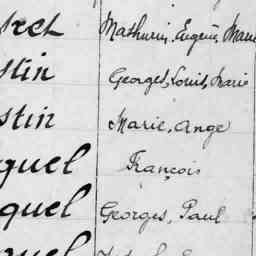 Mathurin, Eugène, Marie
stin Georges, Louis, Marie
stin Marie, Ange
quel François
quel Georges, Paul
quel